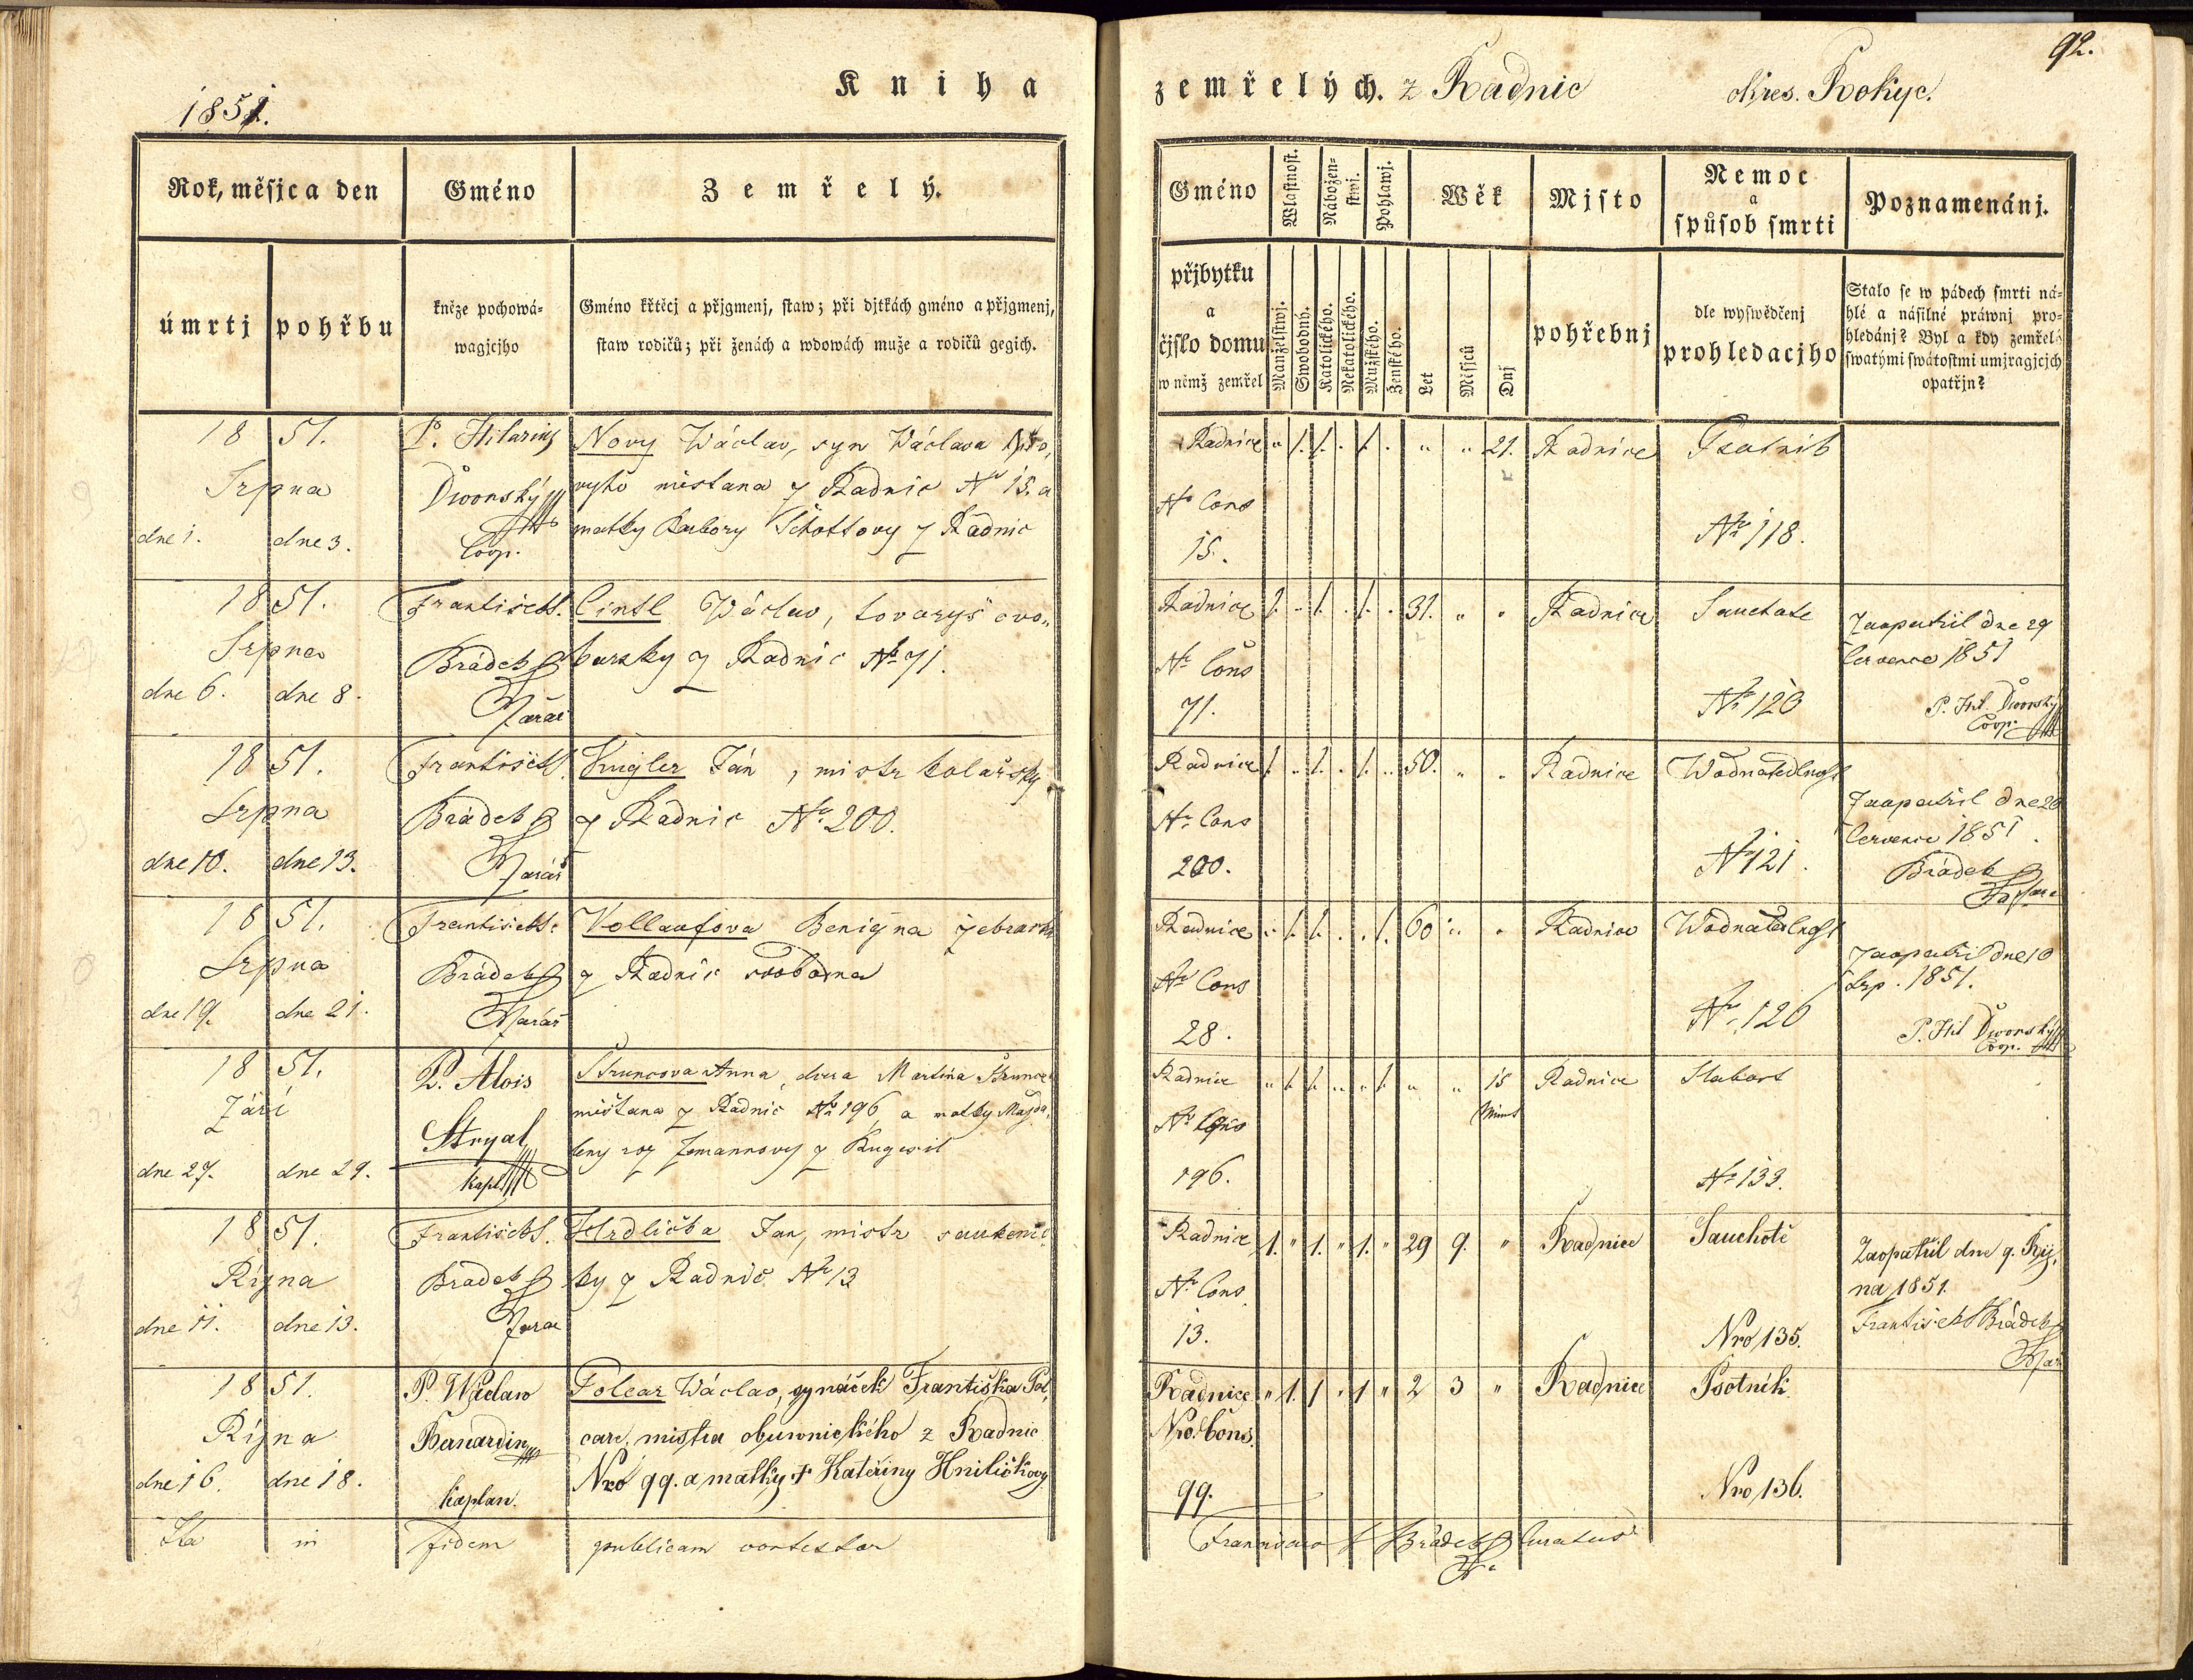 1851.
Kniha
zemřelých. z Radnic okres. Rokyc.
92.
Rok, měsjc a den
Gméno
Zemřelý.
úmrtj
pohřbu
kněze pochowá=
wagjcjho
Gméno křtěcj a přjgmenj, staw; při djtkách gméno a přjgmenj,
staw rodičů; při ženách a wdowách muže a rodičů gegich.
Gméno
Wlastnost.
Nábožen=
stwj.
Pohlawj.
Wěk
Mjsto
Nemoc
a
spůsob smrti
Poznamenánj.
přjbytku
a
čjslo domu
w němž zemřel
Manželstwj.
Swobodný.
Katolického.
Nekatolického.
Mužského.
Ženského.
Let
Měsjců
Dnj
pohřebnj
dle wyswědčenj
prohledacjho
Stalo se w pádech smrti ná=
hlé a násilné práwnj pro=
hledánj? Byl a kdy zemřelý
swatými swátostmi umjragjcjch
opatřjn?
1851.
Srpna
dne 1. dne 3.
P. Hilarius
Dworský
Coop.
Nový Wáclav, syn Wáclava No,
vyho mistana z Radnic Nr 15. a
matky Barbory Schottovy z Radnic
Radnice
Nr Cons
15.
" 1. 1. . 1. . " " 21.
Radnice
Psotnik
Nr 118.
1851.
Srpna
dne 6. dne 8.
Frantisek
Brádek
Farář
Cintl Wáclav, tovaryš
z Radnic Nr 71.
Radnice
Nr Cons
71.
1. " 1. . 1. . 31. " "
Radnice
Sauchote
Nr 120
Zaopatřil dne 29
Července 1851
P. Hil. Dworský
Coop.
1851.
Srpna
dne 10. dne 13.
Frantisek
Brádek
Farář
Kugler Ján, mistr kolařsky
z Radnic Nr 200.
Radnice
Nr Cons
200.
1. " 1. . 1. " 50. " "
Radnice
Wodnatedlnost
Nr 121.
Zaopatřil dne 20
Července 1851.
Brádek
Farář
1851.
Srpna
dne 19. dne 21.
Frantisek
Brádek
Farář
Vollaufova Benigna žebračka
z Radnic svobodna
Radnice
Nr Cons
28.
" 1. 1. . . 1. 60 " "
Radnice
Wodnatedlnost
Nr 126
Zaopatřil dne 10
Srp. 1851.
P. Hil Dworský
Coop.
1851.
Září
dne 27. dne 29.
P. Alois
Stryal
kapl.
Struncova Anna, dcera Martina Strunce
mištana z Radnic Nr 196 a matky Magda,
leny roz Zemannovy z
Radnice
Nr Cons
196.
" 1. 1. " " 1. " " 15
Radnice
Nr 133.
1851.
Října
dne 11. dne 13.
Frantisek
Brádek
Farář
Hrdlička Jan, mistr saukenic,
ky z Radnic Nr 13
Radnice
Nr Cons
13.
1. " 1. " 1. " 29 9. "
Radnice
Sauchotě
Nro 135.
Zaopatřil dne 9. Říj,
na 1851.
Frantisek Brádek
Far
1851.
Října
dne 16. dne 18.
P. Wáclaw
Bernardin
kaplan.
Polcar Wáclav, synáček Františka Pol,
cara, mistra obuwnického z Radnic
Nro 99. a matky † Kateřiny Hniličkovy
Radnice
Nro. Cons.
99.
" 1. 1 " 1 " 2 3 "
Radnice
Psotník.
Nro 136.
Ita in fidem publicam contestor
Brádek Curatus